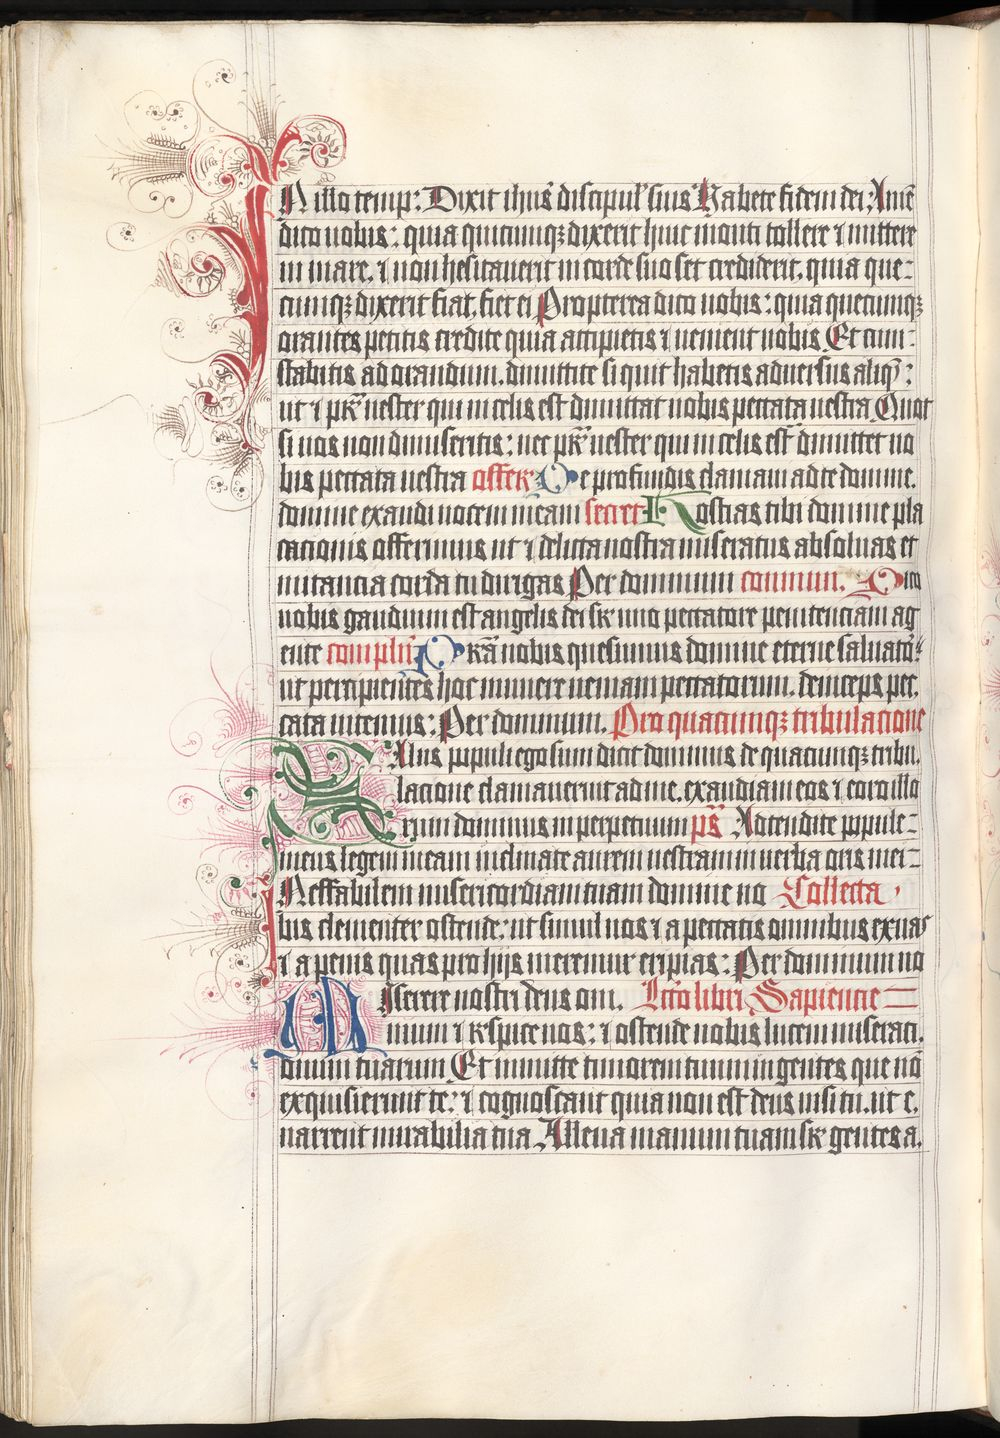 IN illo temp: Dixit ihus discipul' suis Habete fidem dei Amē
dico uobis: quia quicunqz dixerit huic monti tollere ⁊ mittere
in mare. ⁊ non hesitauerit in corde suo set crediderit. quia que-
cunqz dixerit fiat. fiet ei Propterea dico uobis: quia quecunqz
orantes petitis credite quia accipietis ⁊ uenient uobis Et cum-
stabitis ad orandum. dimittite si quit habetis aduersus aliqͥ:
ut ⁊ pr̄ uester qui in celis est dimittat uobis peccata uestra Quot
si uos non dimiseritis: nec pr̄ uester qui in celis est dimittet uo
bis peccata uestra offer De profundis clamaui ad te domine.
domine exaudi uocem meam secret Hostias tibi domine pla
cacionis offerimus ut ⁊ delicta nostra miseratus absoluas et
nutancia corda tu dirigas Per dominum commun. Dico
uobis gaudium est angelis dei sr uno peccatore penitenciam ag
ente complen̄ Prā nobis quesumus domine eterne saluator
ut percipientes hoc munere ueniam peccatorum. deinceps pec.
cata uitemus: Per dominum. Pro quacunqz tribulacione
SAlus populi ego sum dicit dominus de quacunqz tribu.
lacione clamauerunt ad me. exaudiam eos ⁊ ero illo
rum dominus in perpetuum ps̄ Adtendite popule-
meus legem meam inclinate aurem uestram in uerba oris mei-
INeffabilem misericordiam tuam domine no Collecta
bis clementer ostende: ut simul nos ⁊ a peccatis omnibus exuas
⁊ a penis quas pro hijs meremur eripias: Per dominum no
MIserere nostri deus om. Lcō libri Sapiencie
nium ⁊ respice nos: ⁊ ostende nobis lucem miseraci.
onum tuarum Et inmitte timorem tuum in gentes que nō
exquisierunt te: ⁊ cognoscant quia non est deus nisi tu. ut e.
narrent mirabilia tua Alleua manum tuam sr gentes a.